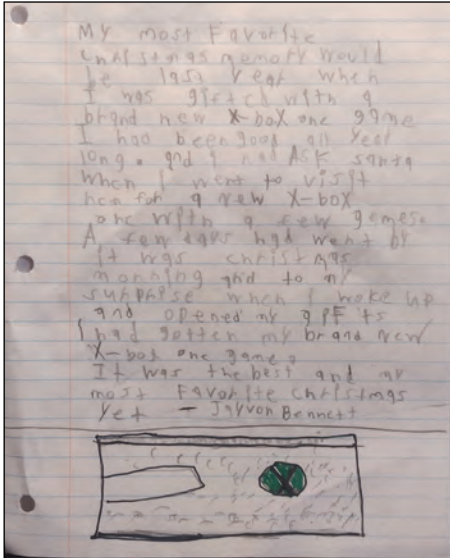 My most Favorite
christmas memory would
be last year when
I was gifted with a
brand new X-box one game
I had been good all year
long. and I had ASK santa
when I went to visit
hen for a new X-box
one with a few games.
A few days had went by
it was christmas
monning and to my
surprise when I woke up
and opened my giFts
I had gotten my brand new
X-box one game.
It was the best and my
most Favorite christmas
yet - Jayvon Bennett